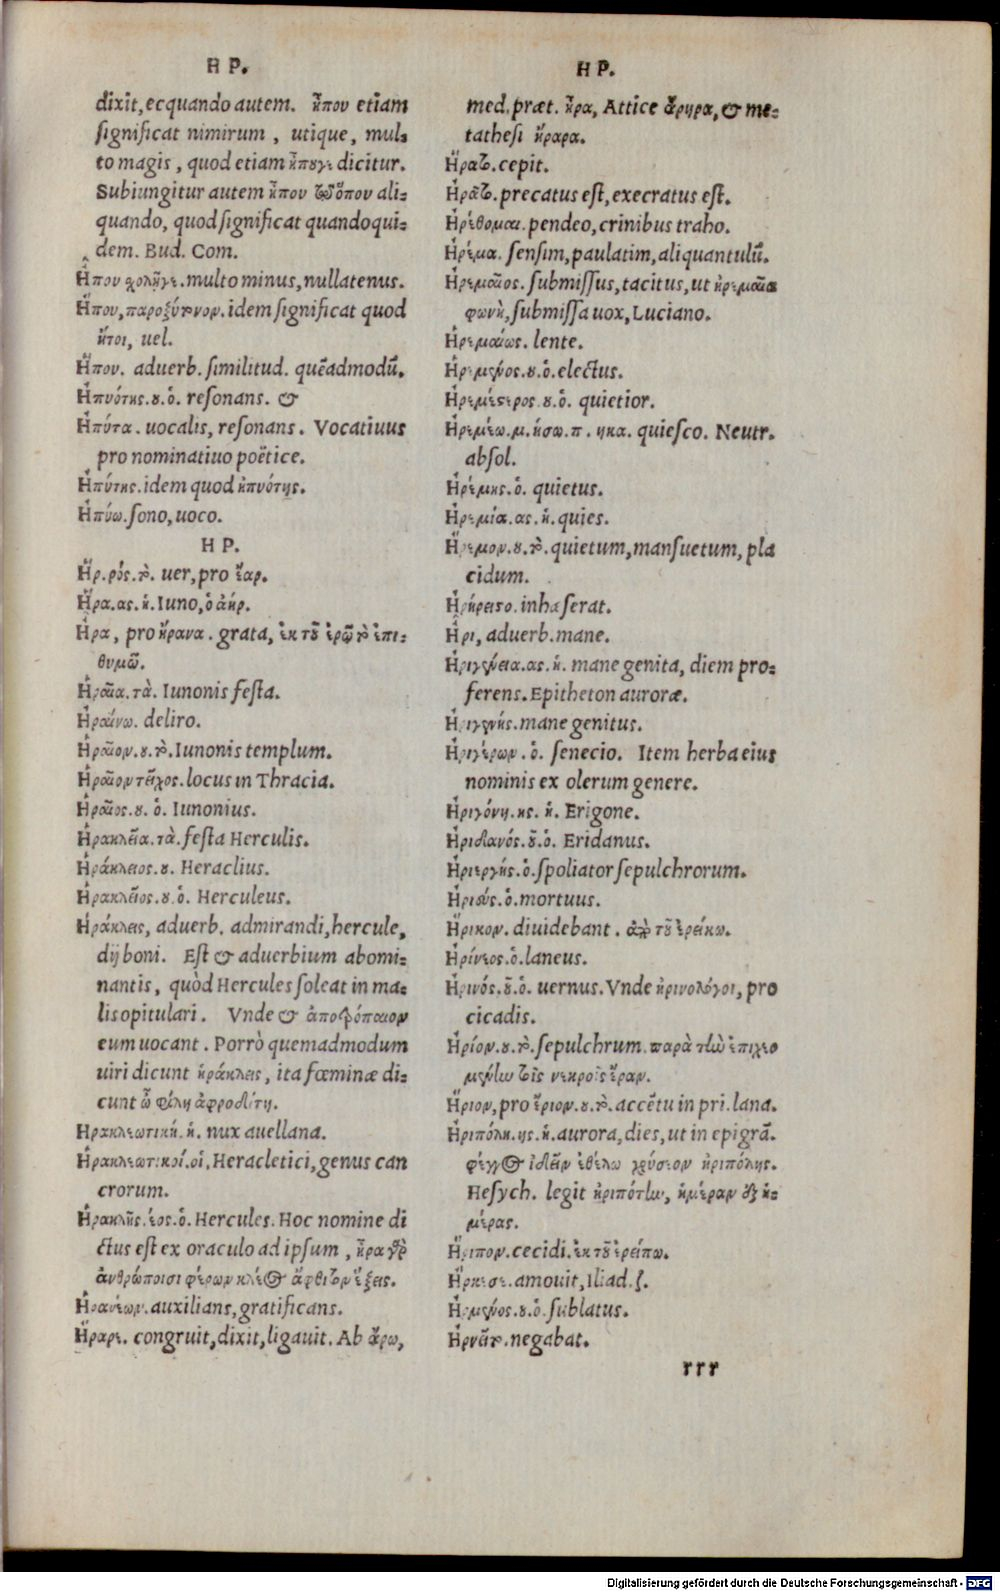 H P.
dixit, ecquando autem. ἦπου etiam
significat nimirum, utique, mul-
to magis, quod etiam ἦπουγε dicitur.
Subiungitur autem ἦπου τῷ ὅπου ali-
quando, quod significat quandoqui-
dem. Bud. Com.
Ἦπου σχολῇγε. multo minus, nullatenus.
Ἤπου, παροξύτονον. idem significat quod
ἤτοι, uel.
Ἧπου. aduerb. similitud. quẽadmodũ.
Ἠπυότης. ου. ὁ. resonans. &
Ἠπύτα. uocalis, resonans. Vocatiuus
pro nominatiuo poëtice.
Ἠπύτης. idem quod ἠπυότης.
Ἠπύω. sono, uoco.
H P.
Ἦρ. ρός. τὸ. uer, pro ἔαρ.
Ἥρα. ας. ἡ. Iuno, ὁ ἀήρ.
Ἦρα, pro ἤρανα. grata, ἐκ τοῦ ἐρῶ τὸ ἐπι-
θυμῶ.
Ἡραῖα. τὰ. Iunonis festa.
Ἠραίνω. deliro.
Ἡραῖον. ου. τὸ. Iunonis templum.
Ἡραῖον τεῖχος. locus in Thracia.
Ἡραῖος. ου. ὁ. Iunonius.
Ἡρακλεῖα. τὰ. festa Herculis.
Ἡράκλειος. ου. Heraclius.
Ἡρακλεῖος. ου. ὁ. Herculeus.
Ἡράκλεις, aduerb. admirandi, hercule,
dij boni. Est & aduerbium abomi-
nantis, quòd Hercules soleat in ma-
lis opitulari. Vnde & ἀποτρόπαιον
eum uocant. Porrò quemadmodum
uiri dicunt ἡράκλεις, ita fœminæ di-
cunt ὦ φίλη ἀφροδίτη.
Ἡρακλεωτική. ἡ. nux auellana.
Ἡρακλεωτικοί. οἱ, Heracletici, genus can
crorum.
Ἡρακλῆς. έος. ὁ. Hercules. Hoc nomine di
ctus est ex oraculo ad ipsum, ἦρα γὰρ
ἀνθρώποισι φέρων κλέος ἄφθιτον ἕξεις.
Ἠρανέων. auxilians, gratificans.
Ἤραρε. congruit, dixit, ligauit. Ab ἄρω,
H P.
med. præt. ἦρα, Attice ἄρηρα, & me-
tathesi ἤραρα.
Ἤρατο. cepit.
Ἠρᾶτο. precatus est, execratus est.
Ἠρέθομαι. pendeo, crinibus traho.
Ἠρέμα. sensim, paulatim, aliquantulũ.
Ἠρεμαῖος. submissus, tacitus, ut ἠρεμαῖα
φωνὴ, submissa uox, Luciano.
Ἠρεμαίως. lente.
Ἠρεμένος. ου. ὁ. electus.
Ἠρεμέστερος. ου. ὁ. quietior.
Ἠρεμέω. μ. ήσω. π. ηκα. quiesco. Neutr.
absol.
Ἠρέμης. ὁ. quietus.
Ἠρεμία. ας. ἡ. quies.
Ἤρεμον. ου. τὸ. quietum, mansuetum, pla
cidum.
Ἠρήρειστο. inhæserat.
Ἦρι, aduerb. mane.
Ἠριγένεια. ας. ἡ. mane genita, diem pro-
ferens. Epitheton auroræ.
Ἠριγενής. mane genitus.
Ἠριγέρων. ὁ. senecio. Item herba eius
nominis ex olerum genere.
Ἠριγόνη. ης. ἡ. Erigone.
Ἠριδανός. οῦ. ὁ. Eridanus.
Ἠριεργής. ὁ. spoliator sepulchrorum.
Ἠριεύς. ὁ. mortuus.
Ἤρικον. diuidebant. ἀπὸ τοῦ ἐρείκω.
Ἠρίνεος. ὁ. laneus.
Ἠρινός. οῦ. ὁ. uernus. Vnde ἠρινολόγοι, pro
cicadis.
Ἠρίον. ου. τὸ. sepulchrum. παρὰ τὴν ἐπιχεο
μένην τοῖς νεκροῖς ἔραν.
Ἤριον, pro ἔριον. ου. τὸ. accẽtu in pri. lana.
Ἠριπόλη. ης. ἡ. aurora, dies, ut in epigrã.
φέγγος ἰδεῖν ἐθέλω χρύσεον ἠριπόλης.
Hesych. legit ἠριπότην, ἡμέραν ἐξ ἡ-
μέρας.
Ἤριπον. cecidi. ἐκ τοῦ ἐρείπω.
Ἤρκεσε. amouit, Iliad. ζ.
Ἠρμένος. ου. ὁ. sublatus.
Ἠρνεῖτο. negabat.
rrr
Digitalisierung gefördert durch die Deutsche Forschungsgemeinschaft - DFG